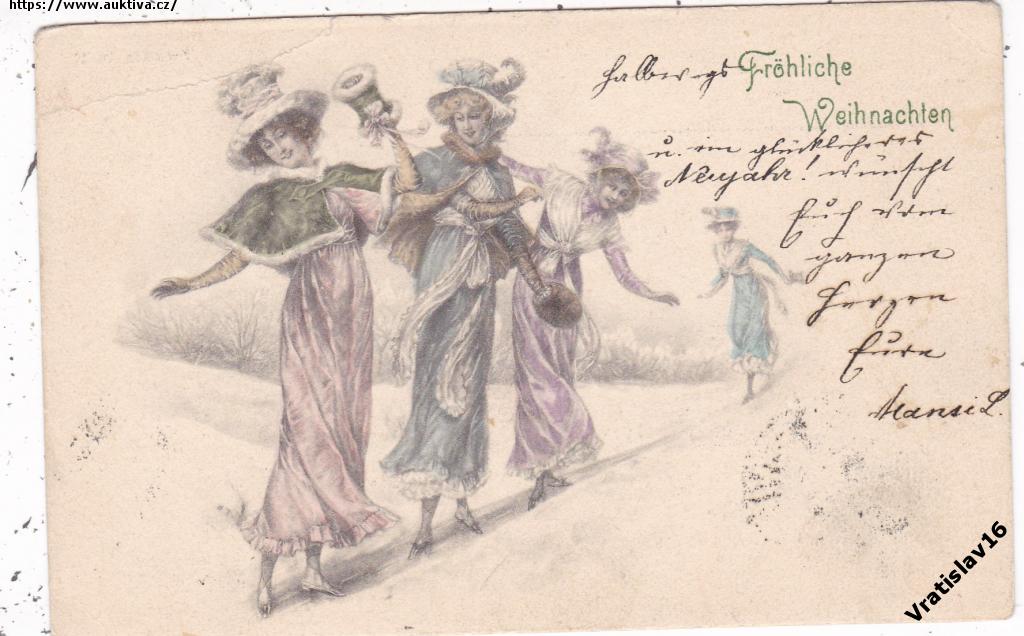 https://www.auktiva.cz/
halbwegs Fröhliche
Weihnachten
u. ein glücklicheres
Neujahr! wünscht
Euch vom
ganzen
Herzen
Eure
Mansi L.
Vratislav16